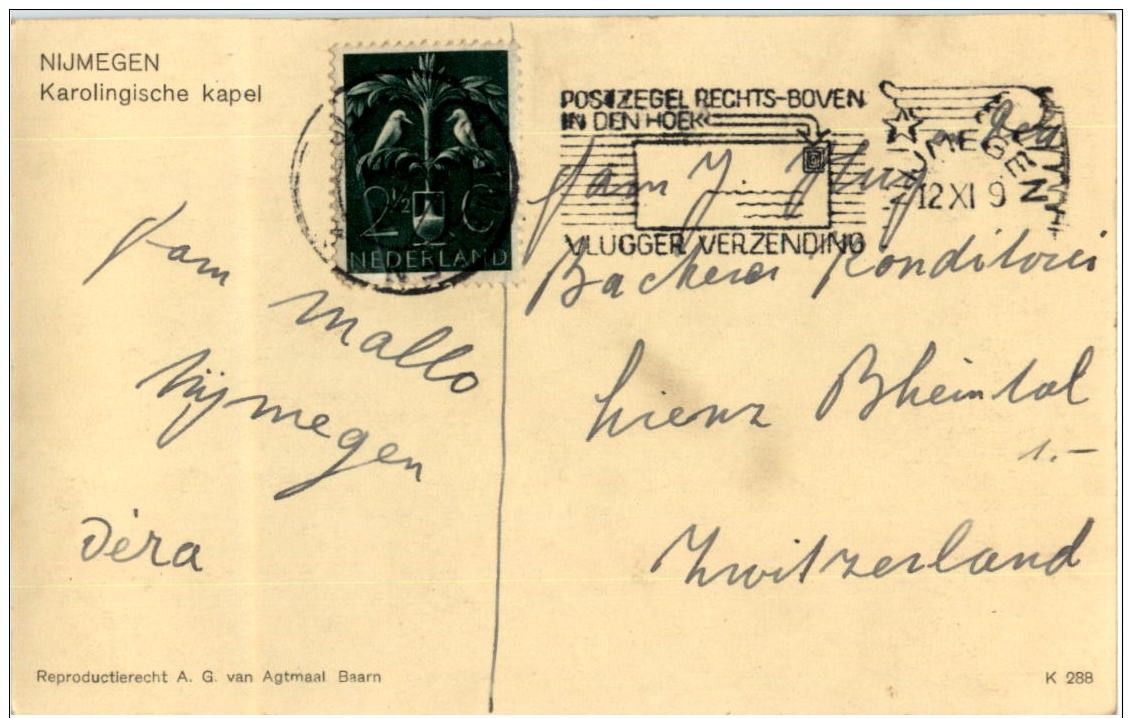 NIJMEGEN
Karolingische kapel
2½ C
NEDERLAND
POSTZEGEL RECHTS-BOVEN
IN DEN HOEK
VLUGGER VERZENDING
NIJMEGEN
12 XI 9
fam Mallo
Nijmegen
Déra
fam J.
Backerei Konditorei
Lienz Rheintal
1.-
Zwitzerland
Reproductierecht A. G. van Agtmaal Baarn
K 288